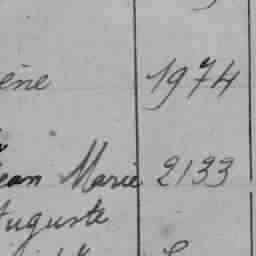 ène 1974
ean Marie 2133
Auguste